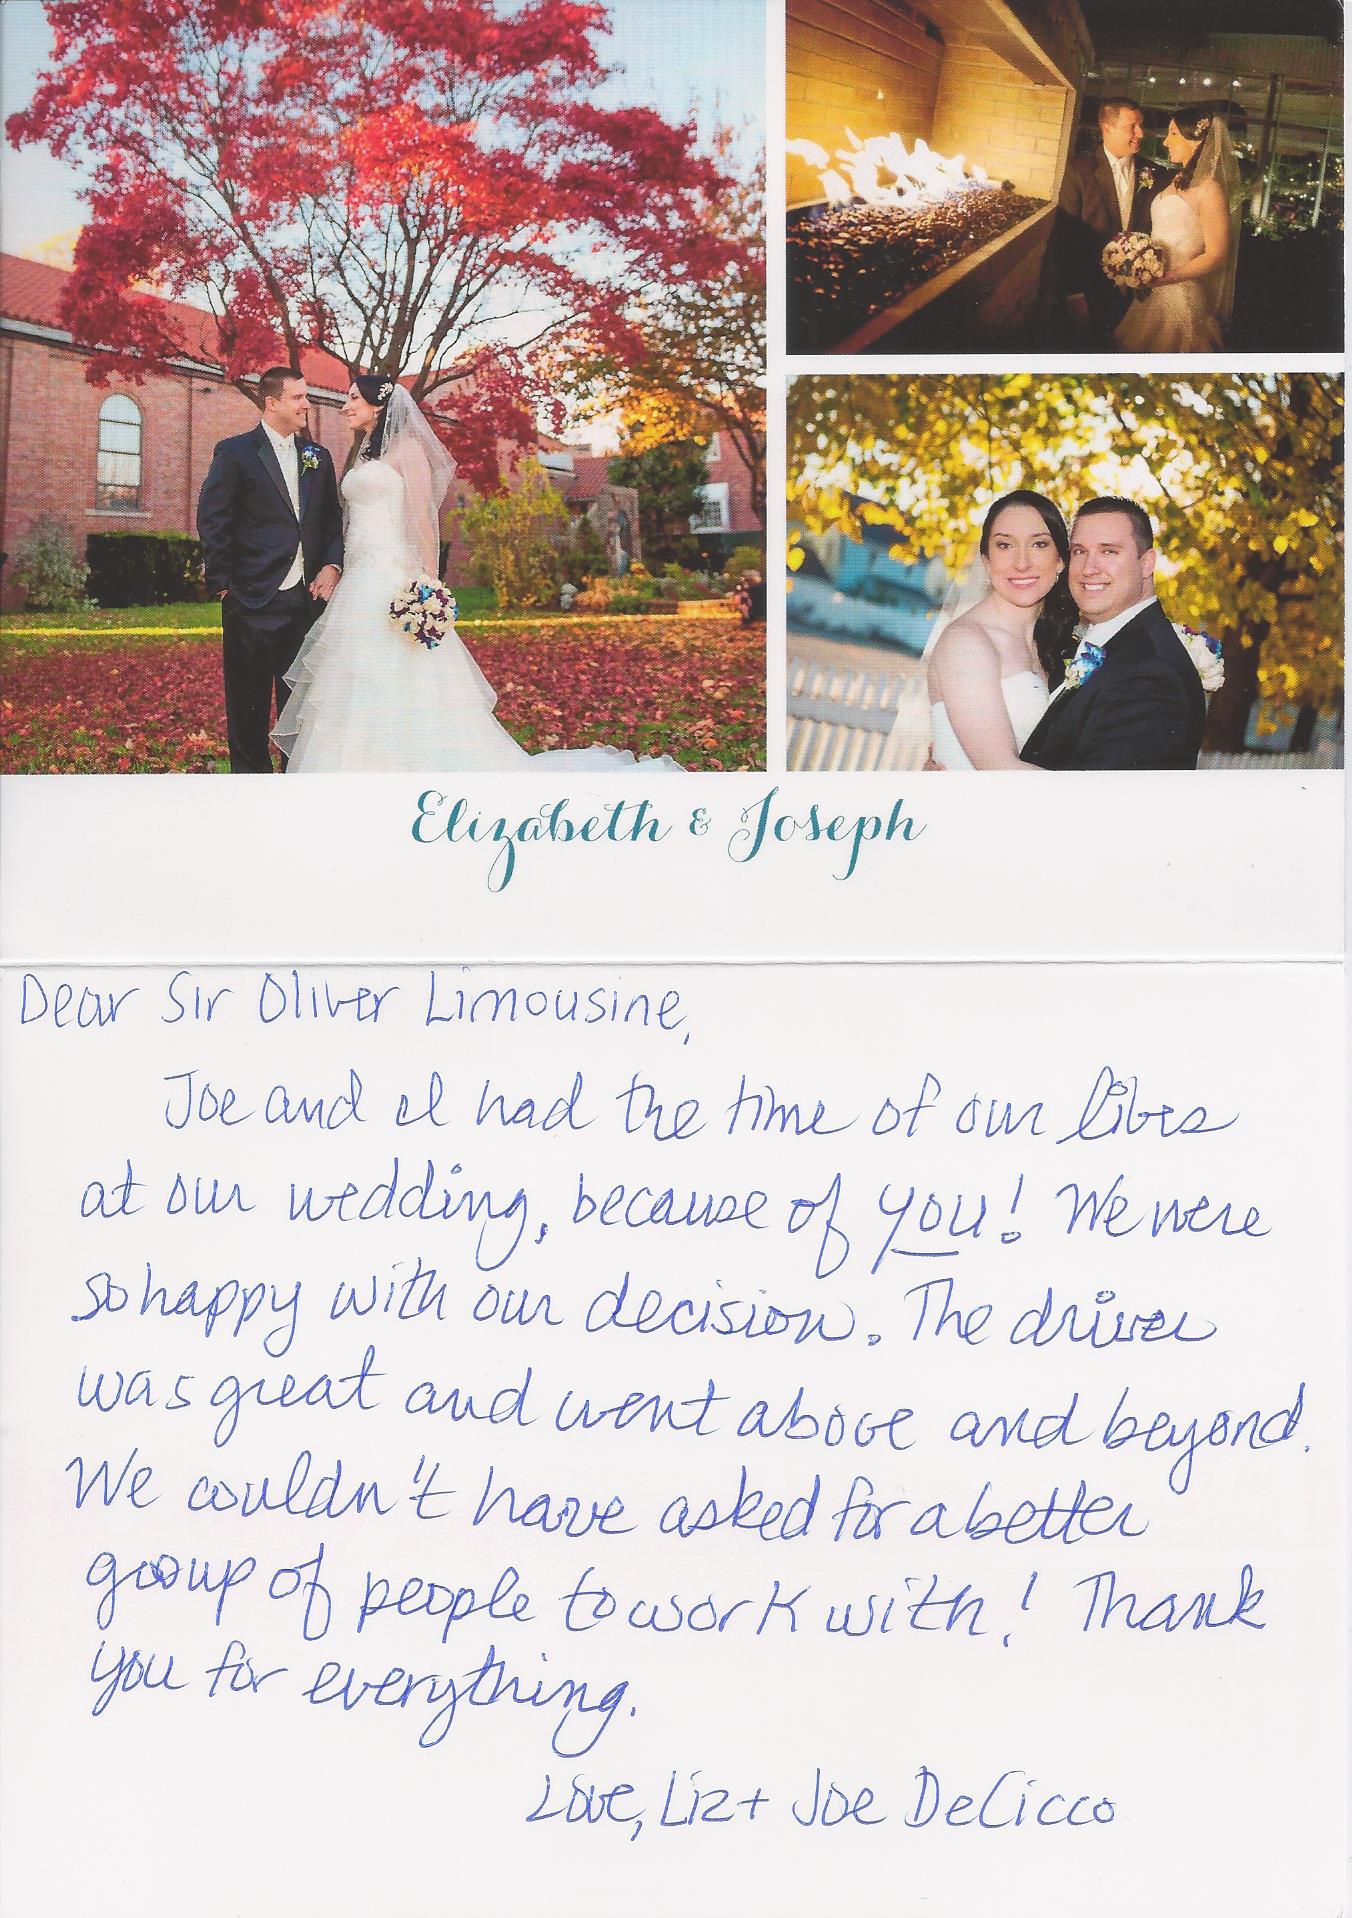 Elizabeth & Joseph
Dear Sir Oliver Limousine,
Joe and I had the time of our lives
at our wedding, because of you! We were
so happy with our decision. The driver
was great and went above and beyond.
We couldn't have asked for a better
group of people to work with! Thank
you for everything.
Love, Liz + Joe DeCicco